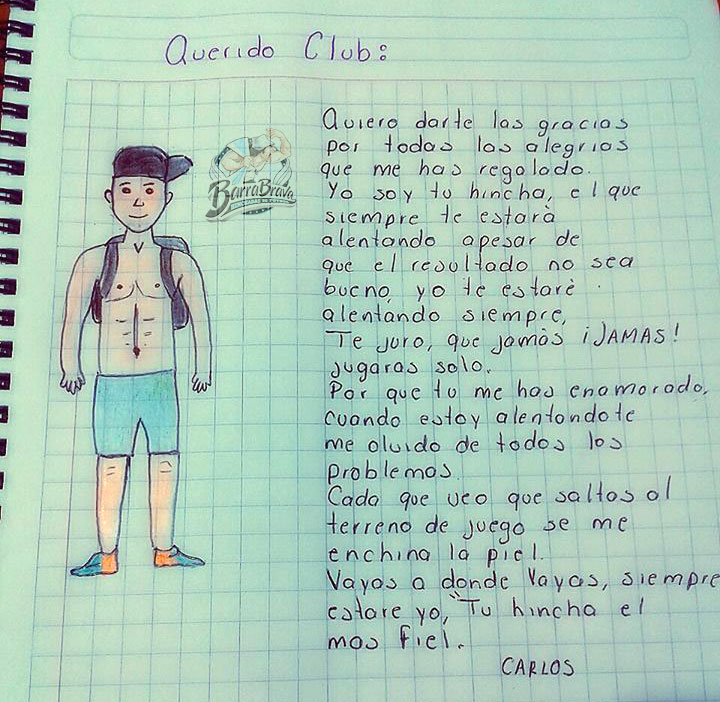 Querido Club:
BarraBrava
Quiero darte las gracias
por todas las alegrias
que me has regalado.
Yo soy tu hincha, el que
siempre te estará
alentando apesar de
que el resultado no sea
bueno, yo te estaré
alentando siempre,
Te juro, que jamás ¡JAMAS!
jugaras solo.
Por que tu me has enamorado,
cuando estoy alentandote
me olvido de todos los
problemas.
Cada que veo que saltas al
terreno de juego se me
enchina la piel.
Vayas a donde Vayas, siempre
estare yo, "Tu hincha el
mas fiel.
CARLOS